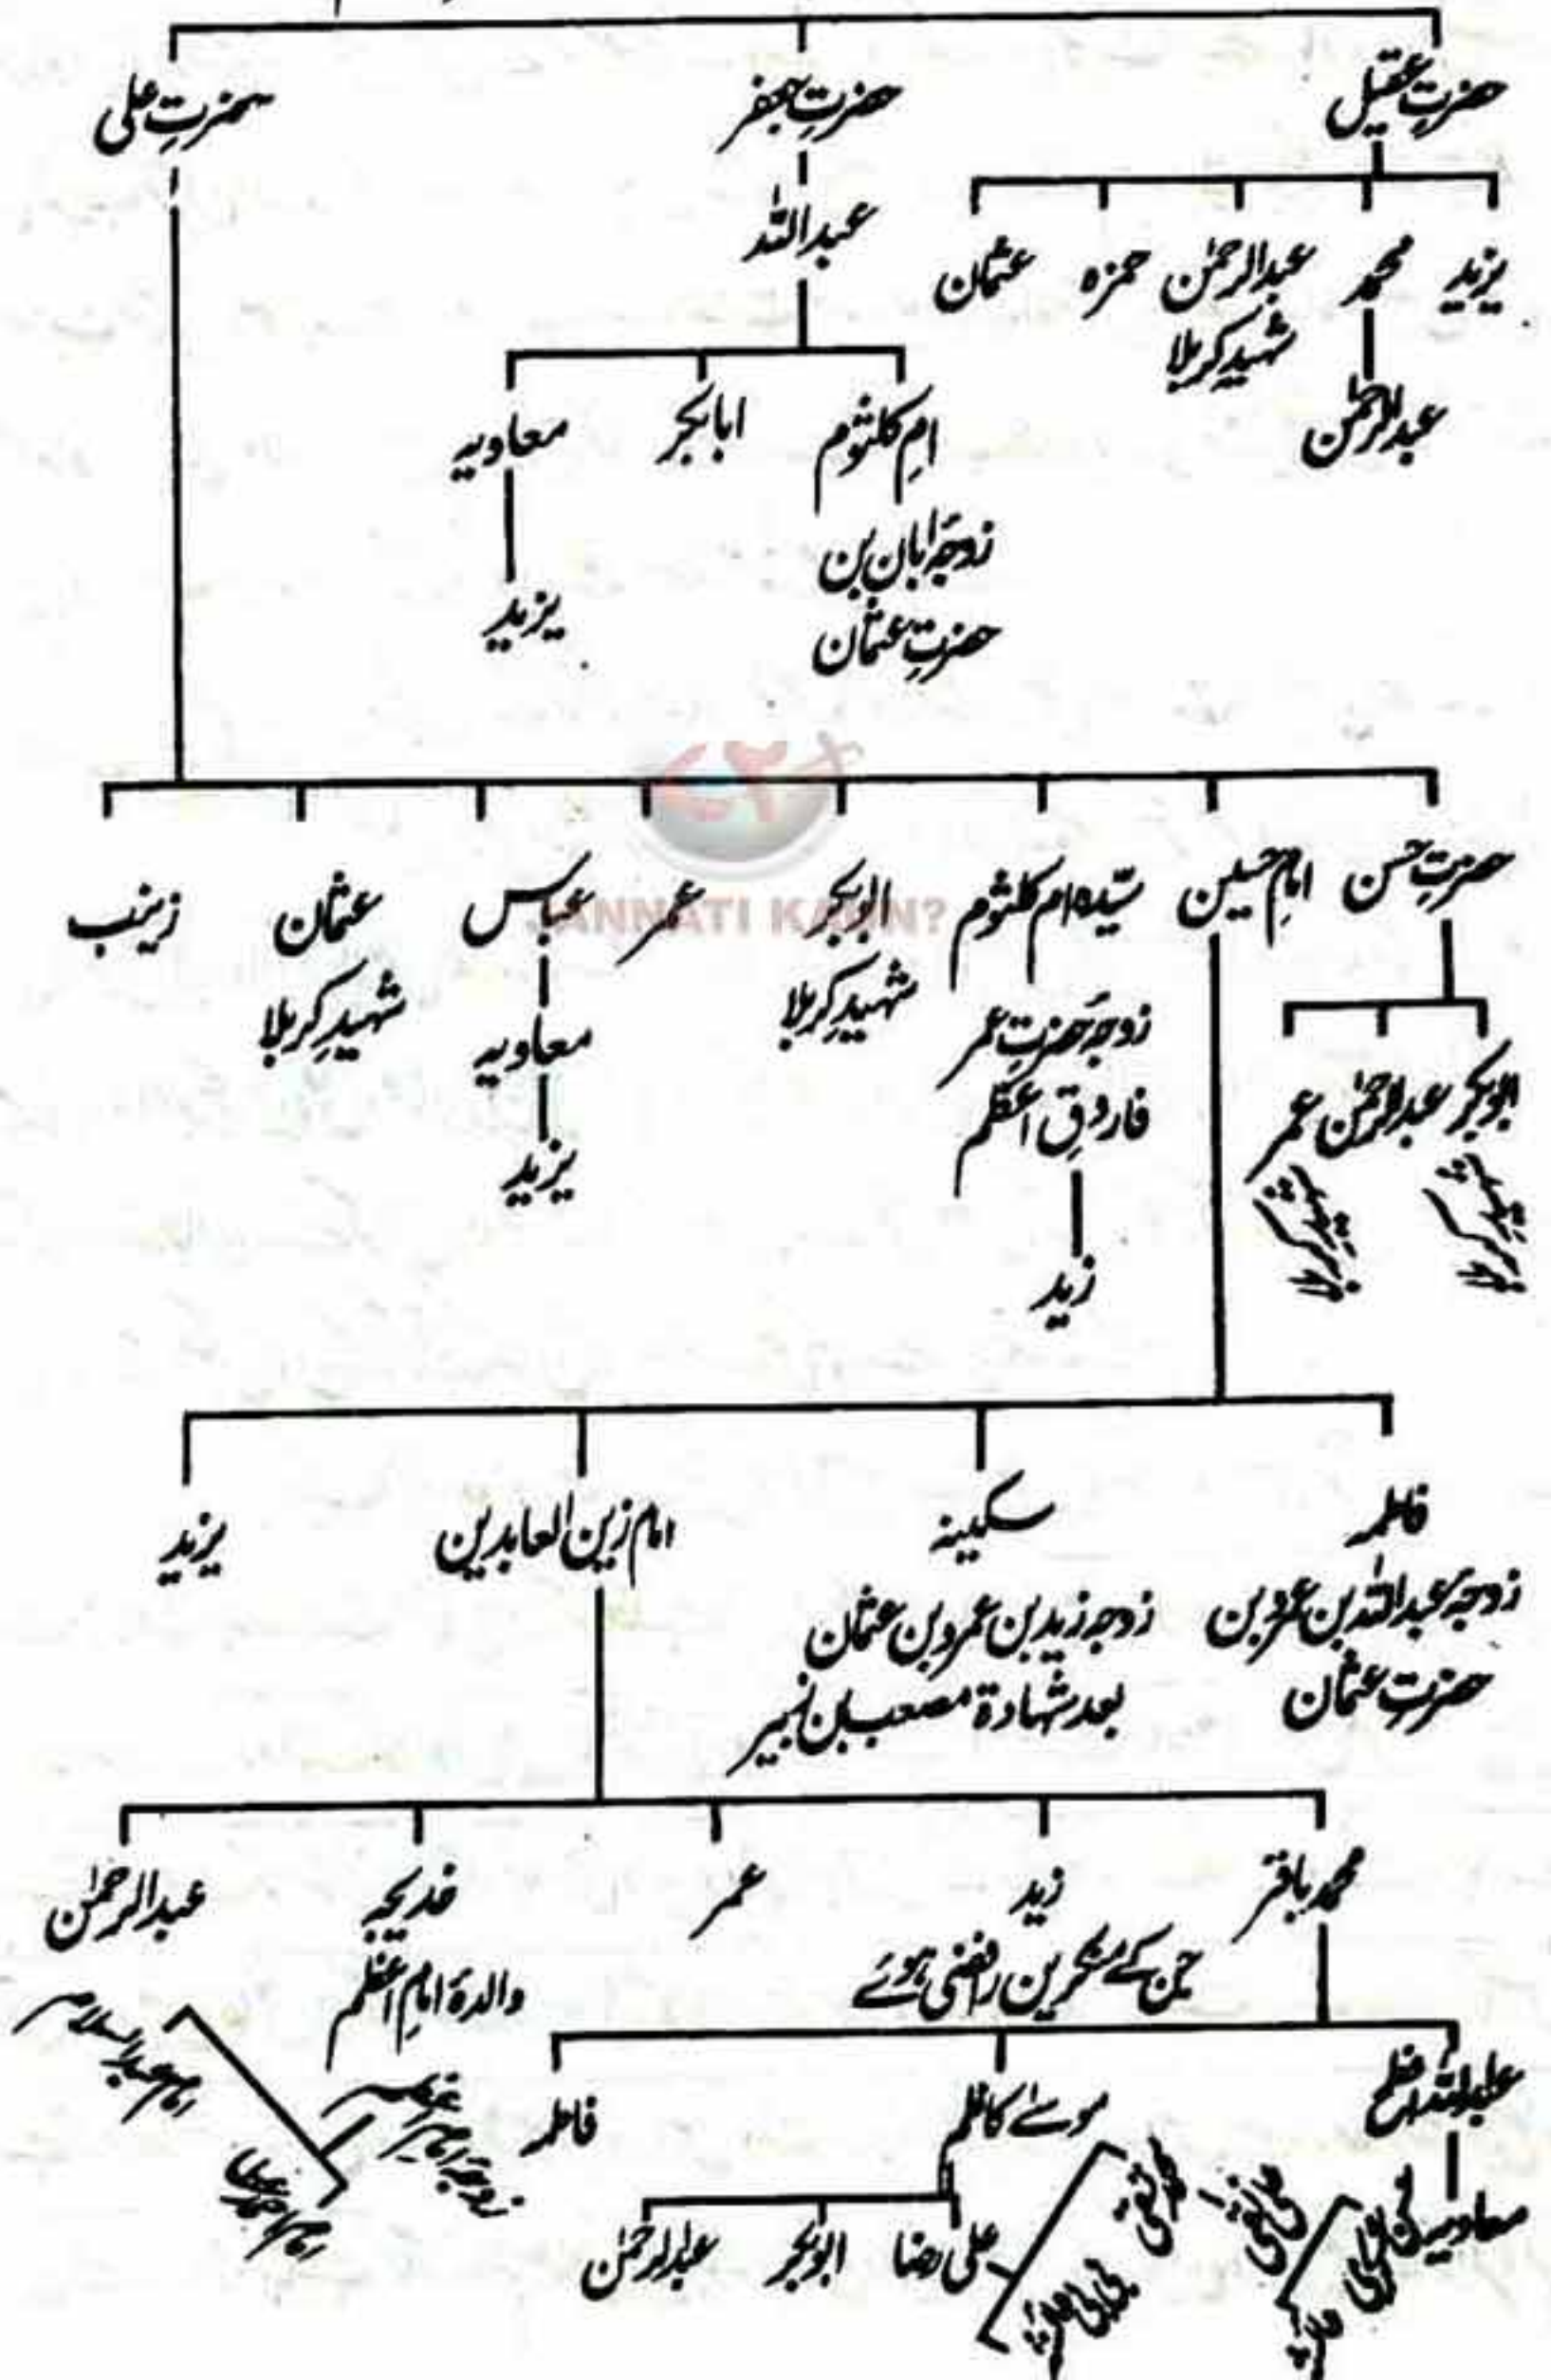 حضرتِ عقیل
حضرتِ جعفر
حضرتِ علی
یزید
محمد
عبدالرحمٰن
شہیدِ کربلا
حمزہ
عثمان
عبدالرحمٰن
عبداللہ
امِ کلثوم
زوجۂ ابان بن
حضرتِ عثمان
ابابکر
معاویہ
یزید
JANNATI KAUN?
حضرتِ حسن
امامِ حسین
سیّدہ ام کلثوم
زوجۂ حضرتِ عمر
فاروقِ اعظم
زید
ابوبکر
شہیدِ کربلا
عمر
عباس
معاویہ
یزید
عثمان
شہیدِ کربلا
زینب
ابوبکر
شہیدِ کربلا
عبدالرحمٰن
عمر
شہیدِ کربلا
فاطمہ
زوجۂ عبداللہ بن عمرو بن
حضرتِ عثمان
سکینہ
زوجہ زید بن عمرو بن عثمان
بعد شہادۃ مصعب بن
امام زین العابدین
یزید
محمد باقر
زید
جن کے منکرین رافضی ہوئے
عمر
خدیجہ
والدۂ امامِ اعظم
عبدالرحمٰن
موسےٰ کاظم
فاطمہ
معاویہ
علی رضا
ابوبکر
عبدالرحمٰن
محمد تقی
علی نقی